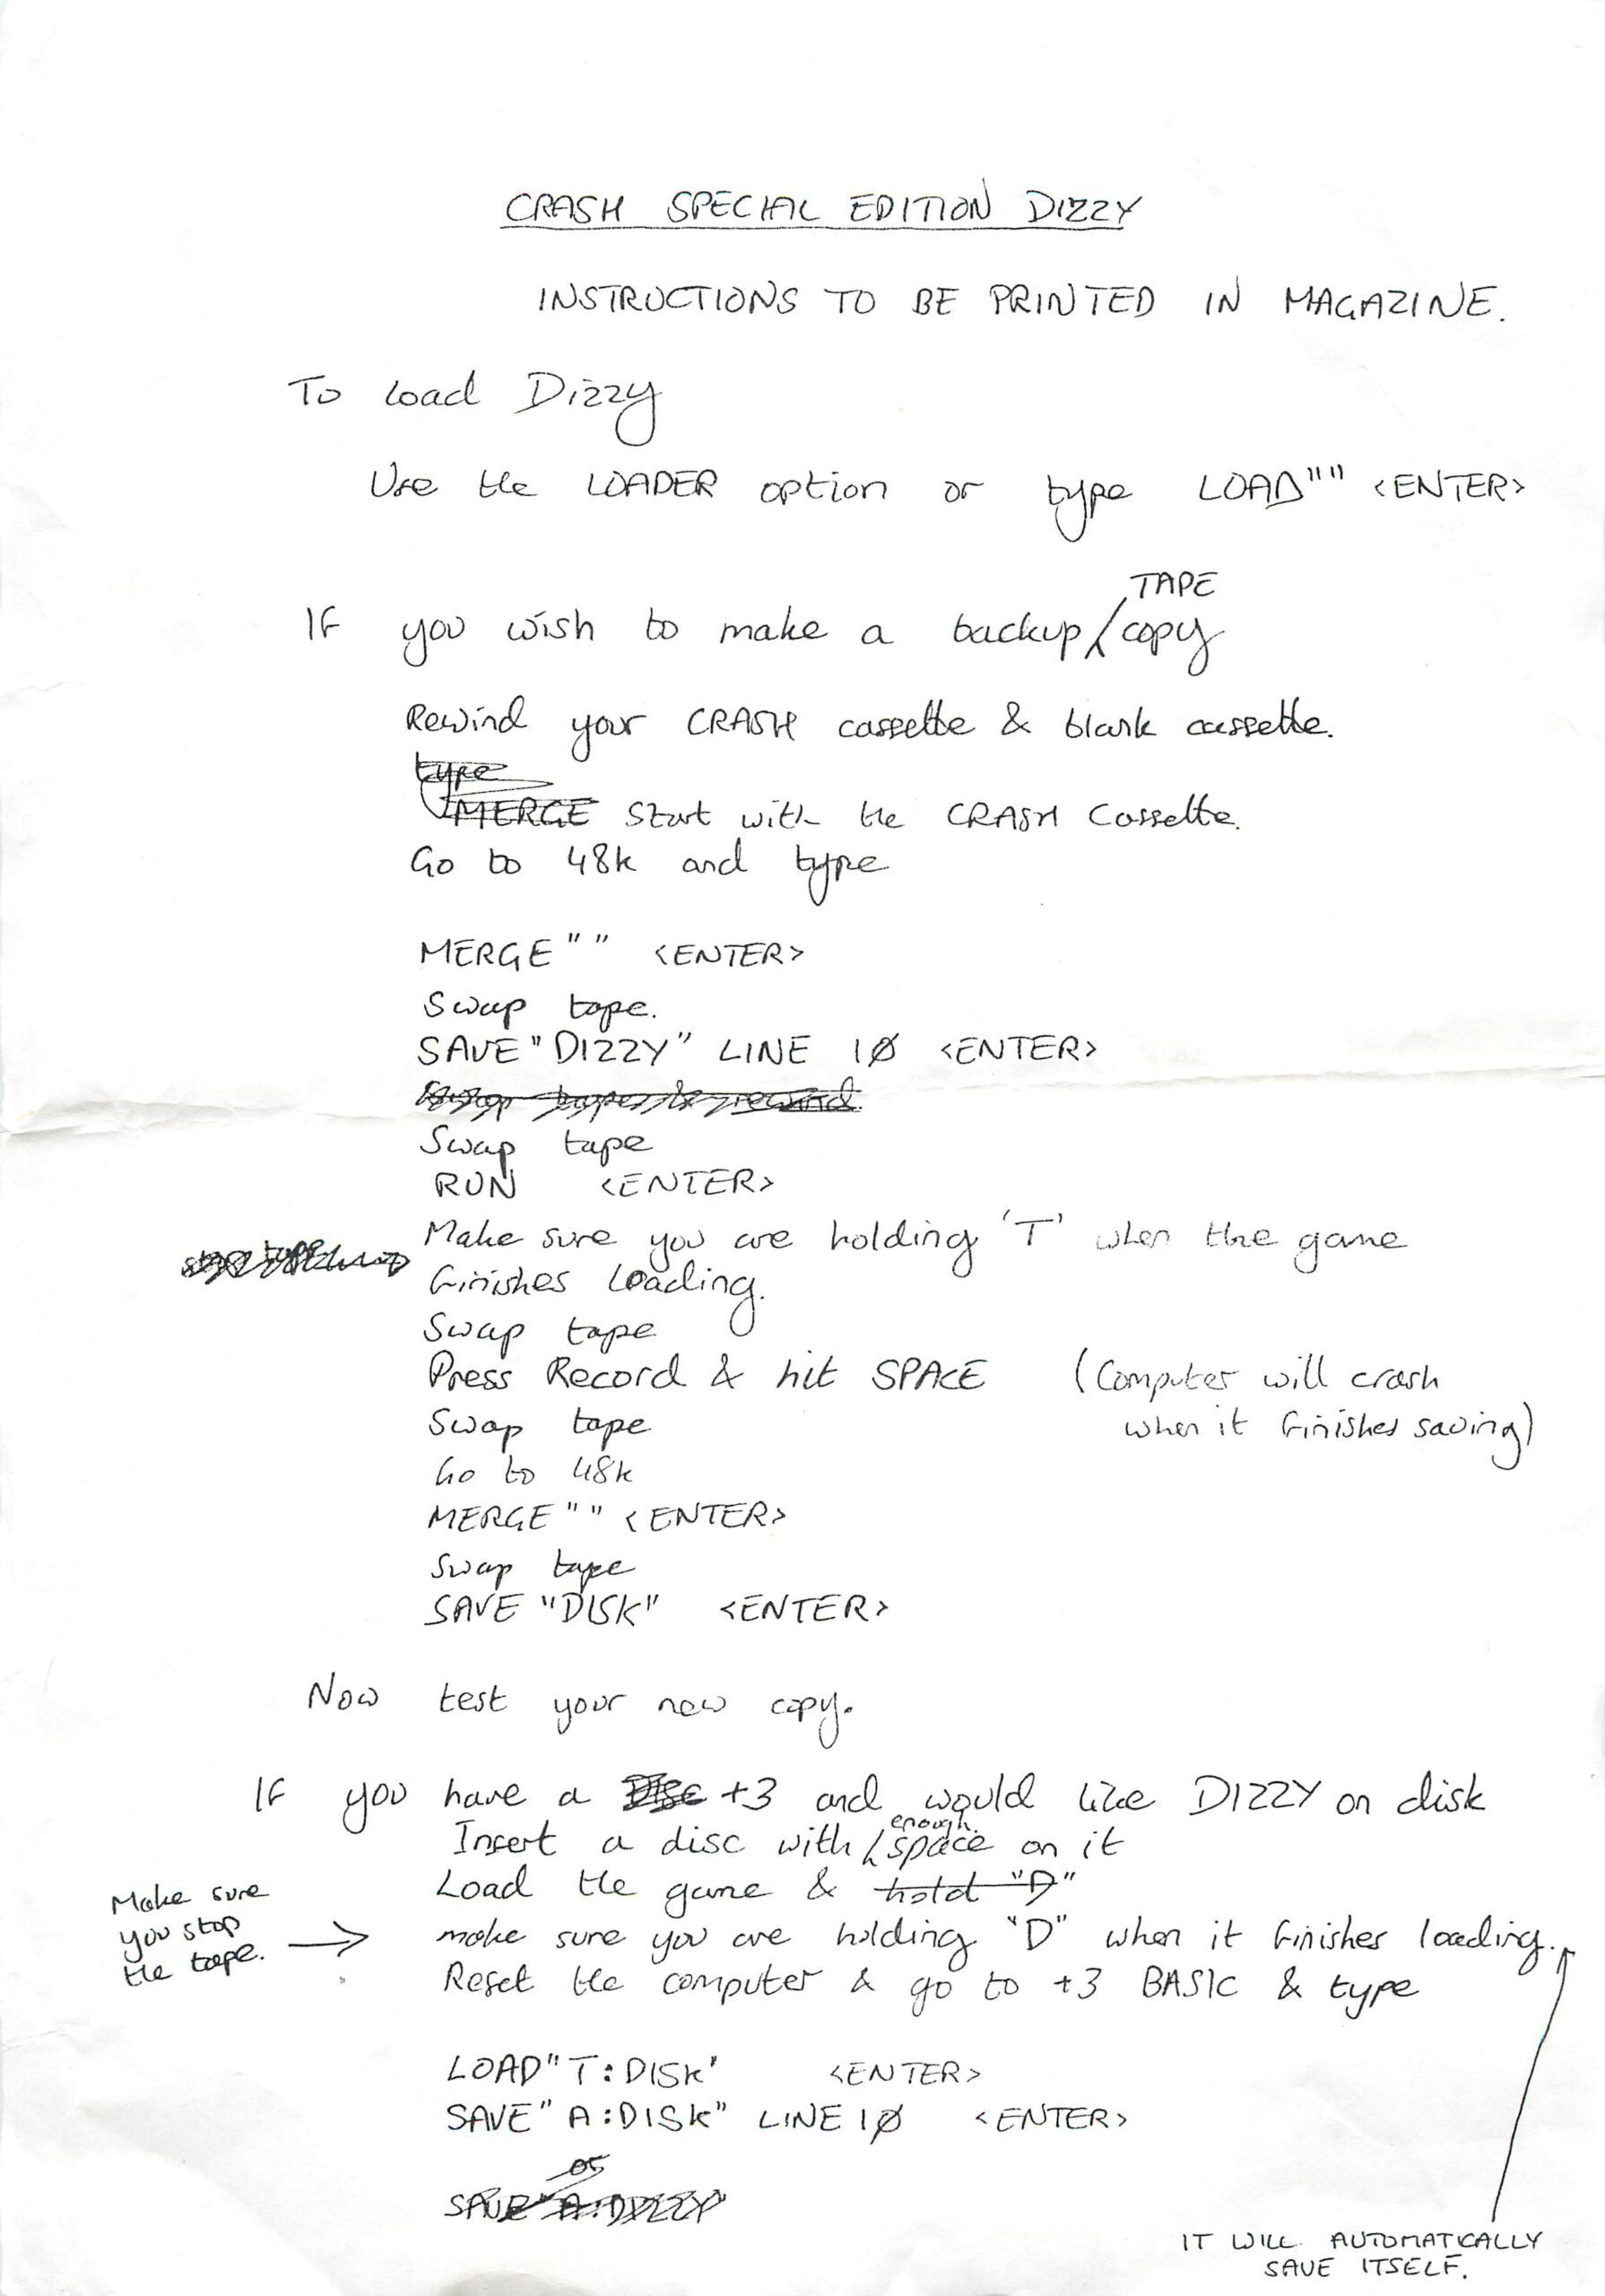 CRASH SPECIAL EDITION DIZZY
INSTRUCTIONS TO BE PRINTED IN MAGAZINE.
To Load Dizzy
Use the LOADER option or type LOAD"" <ENTER>
TAPE
If you wish to make a backup copy
Rewind your CRASH cassette & blank cassette.
type
MERGE Start with the CRASH Cassette.
Go to 48k and type
MERGE "" <ENTER>
Swap tape.
SAVE "DIZZY" LINE 1Ø <ENTER>
Swap tape
RUN <ENTER>
Make sure you are holding 'T' when the game
finishes loading.
Swap tape
Press Record & hit SPACE (Computer will crash
Swap tape when it finishes saving)
Go to 48k
MERGE "" <ENTER>
Swap tape
SAVE "DISK" <ENTER>
Now test your new copy.
If you have a Disc +3 and would like DIZZY on disk
enough
Insert a disc with space on it
Load the game & hold "D"
Make sure
you stop
the tape. →
make sure you are holding "D" when it finishes loading.
Reset the computer & go to +3 BASIC & type
LOAD "T:DISK" <ENTER>
SAVE "A:DISK" LINE 1Ø <ENTER>
or
SAVE "A:DIZZY"
IT WILL AUTOMATICALLY
SAVE ITSELF.